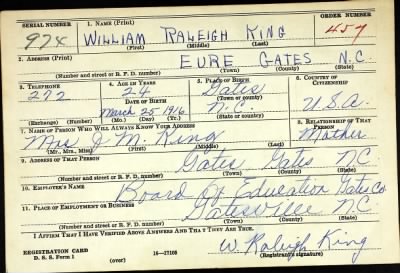 SERIAL NUMBER 1. NAME (Print) ORDER NUMBER
974 WILLIAM RALEIGH KING 457
(First) (Middle) (Last)
2. ADDRESS (Print)
EURE GATES N.C.
(Number and street or R. F. D. number) (Town) (County) (State)
3. TELEPHONE 4. AGE IN YEARS 5. PLACE OF BIRTH 6. COUNTRY OF CITIZENSHIP
272 24 Gates
DATE OF BIRTH (Town or county)
March 25 1916 N.C. U.S.A.
(Exchange) (Number) (Mo.) (Day) (Yr.) (State or country)
7. NAME OF PERSON WHO WILL ALWAYS KNOW YOUR ADDRESS 8. RELATIONSHIP OF THAT PERSON
Mrs J. M. King Mother
(Mr., Mrs., Miss) (First) (Middle) (Last)
9. ADDRESS OF THAT PERSON
Gates Gates N.C.
(Number and street or R. F. D. number) (Town) (County) (State)
10. EMPLOYER'S NAME
Board of Education Gates Co
11. PLACE OF EMPLOYMENT OR BUSINESS
Gatesville N.C.
(Number and street or R. F. D. number) (Town) (County) (State)
I AFFIRM THAT I HAVE VERIFIED ABOVE ANSWERS AND THAT THEY ARE TRUE.
W. Raleigh King
REGISTRATION CARD
D. S. S. Form 1 (over) 16-17105 (Registrant's signature)